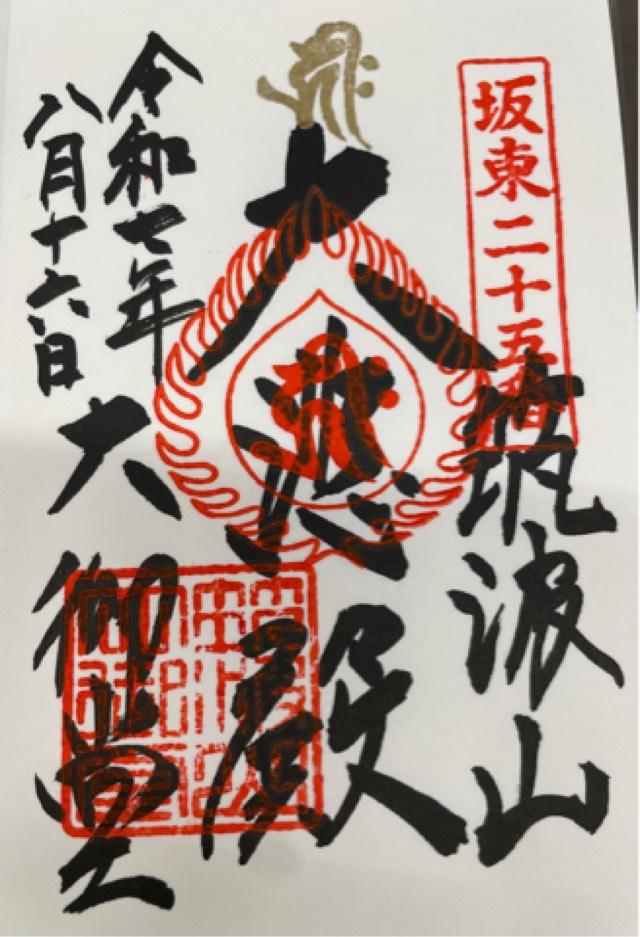 坂東二十五番
筑波山
大悲殿
令和七年
八月十六日
大御堂